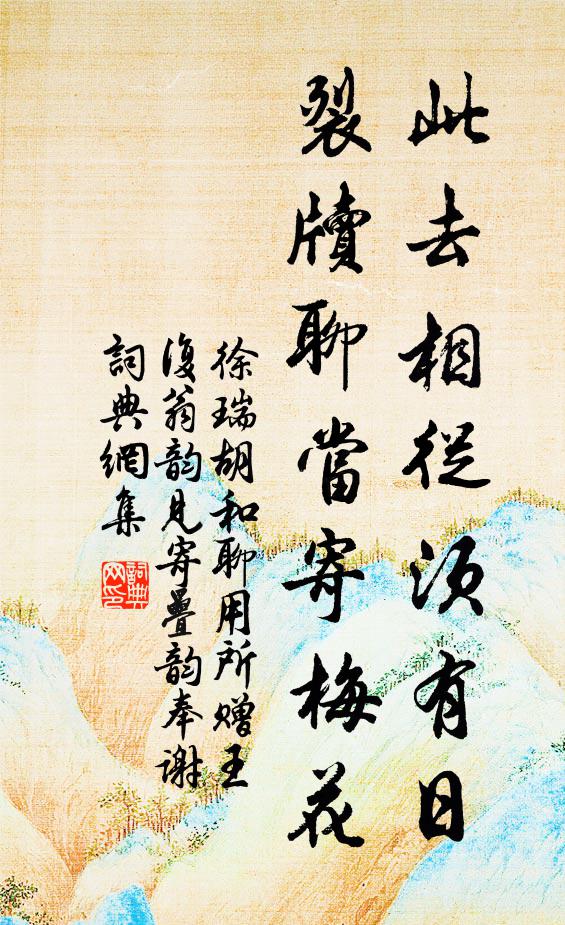 此去相從須有日
裂牘聊當寄梅花
徐瑞胡和聊用所贈王
復翁韵見寄疊韵奉谢
詞典網集
詞典
网印